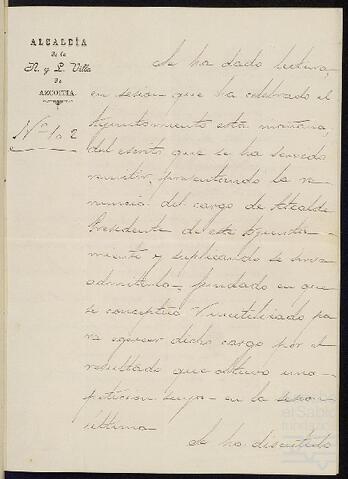 ALCALDÍA
de la
N. y L. Villa
de
AZCOITIA.
Nº 102
Se ha dado lectura,
en sesion que ha celebrado el
Ayuntamiento esta mañana,
del escrito que se ha servido
remitir, presentando la re-
nuncia del cargo de Alcalde
Presidente de este Ayunta-
miento y suplicando se sirva
admitirla, fundado en que
se conceptua inutilizado pa-
ra ejercer dicho cargo por el
resultado que obtuvo una
peticion suya en la sesion
ultima.
Se ha discutido